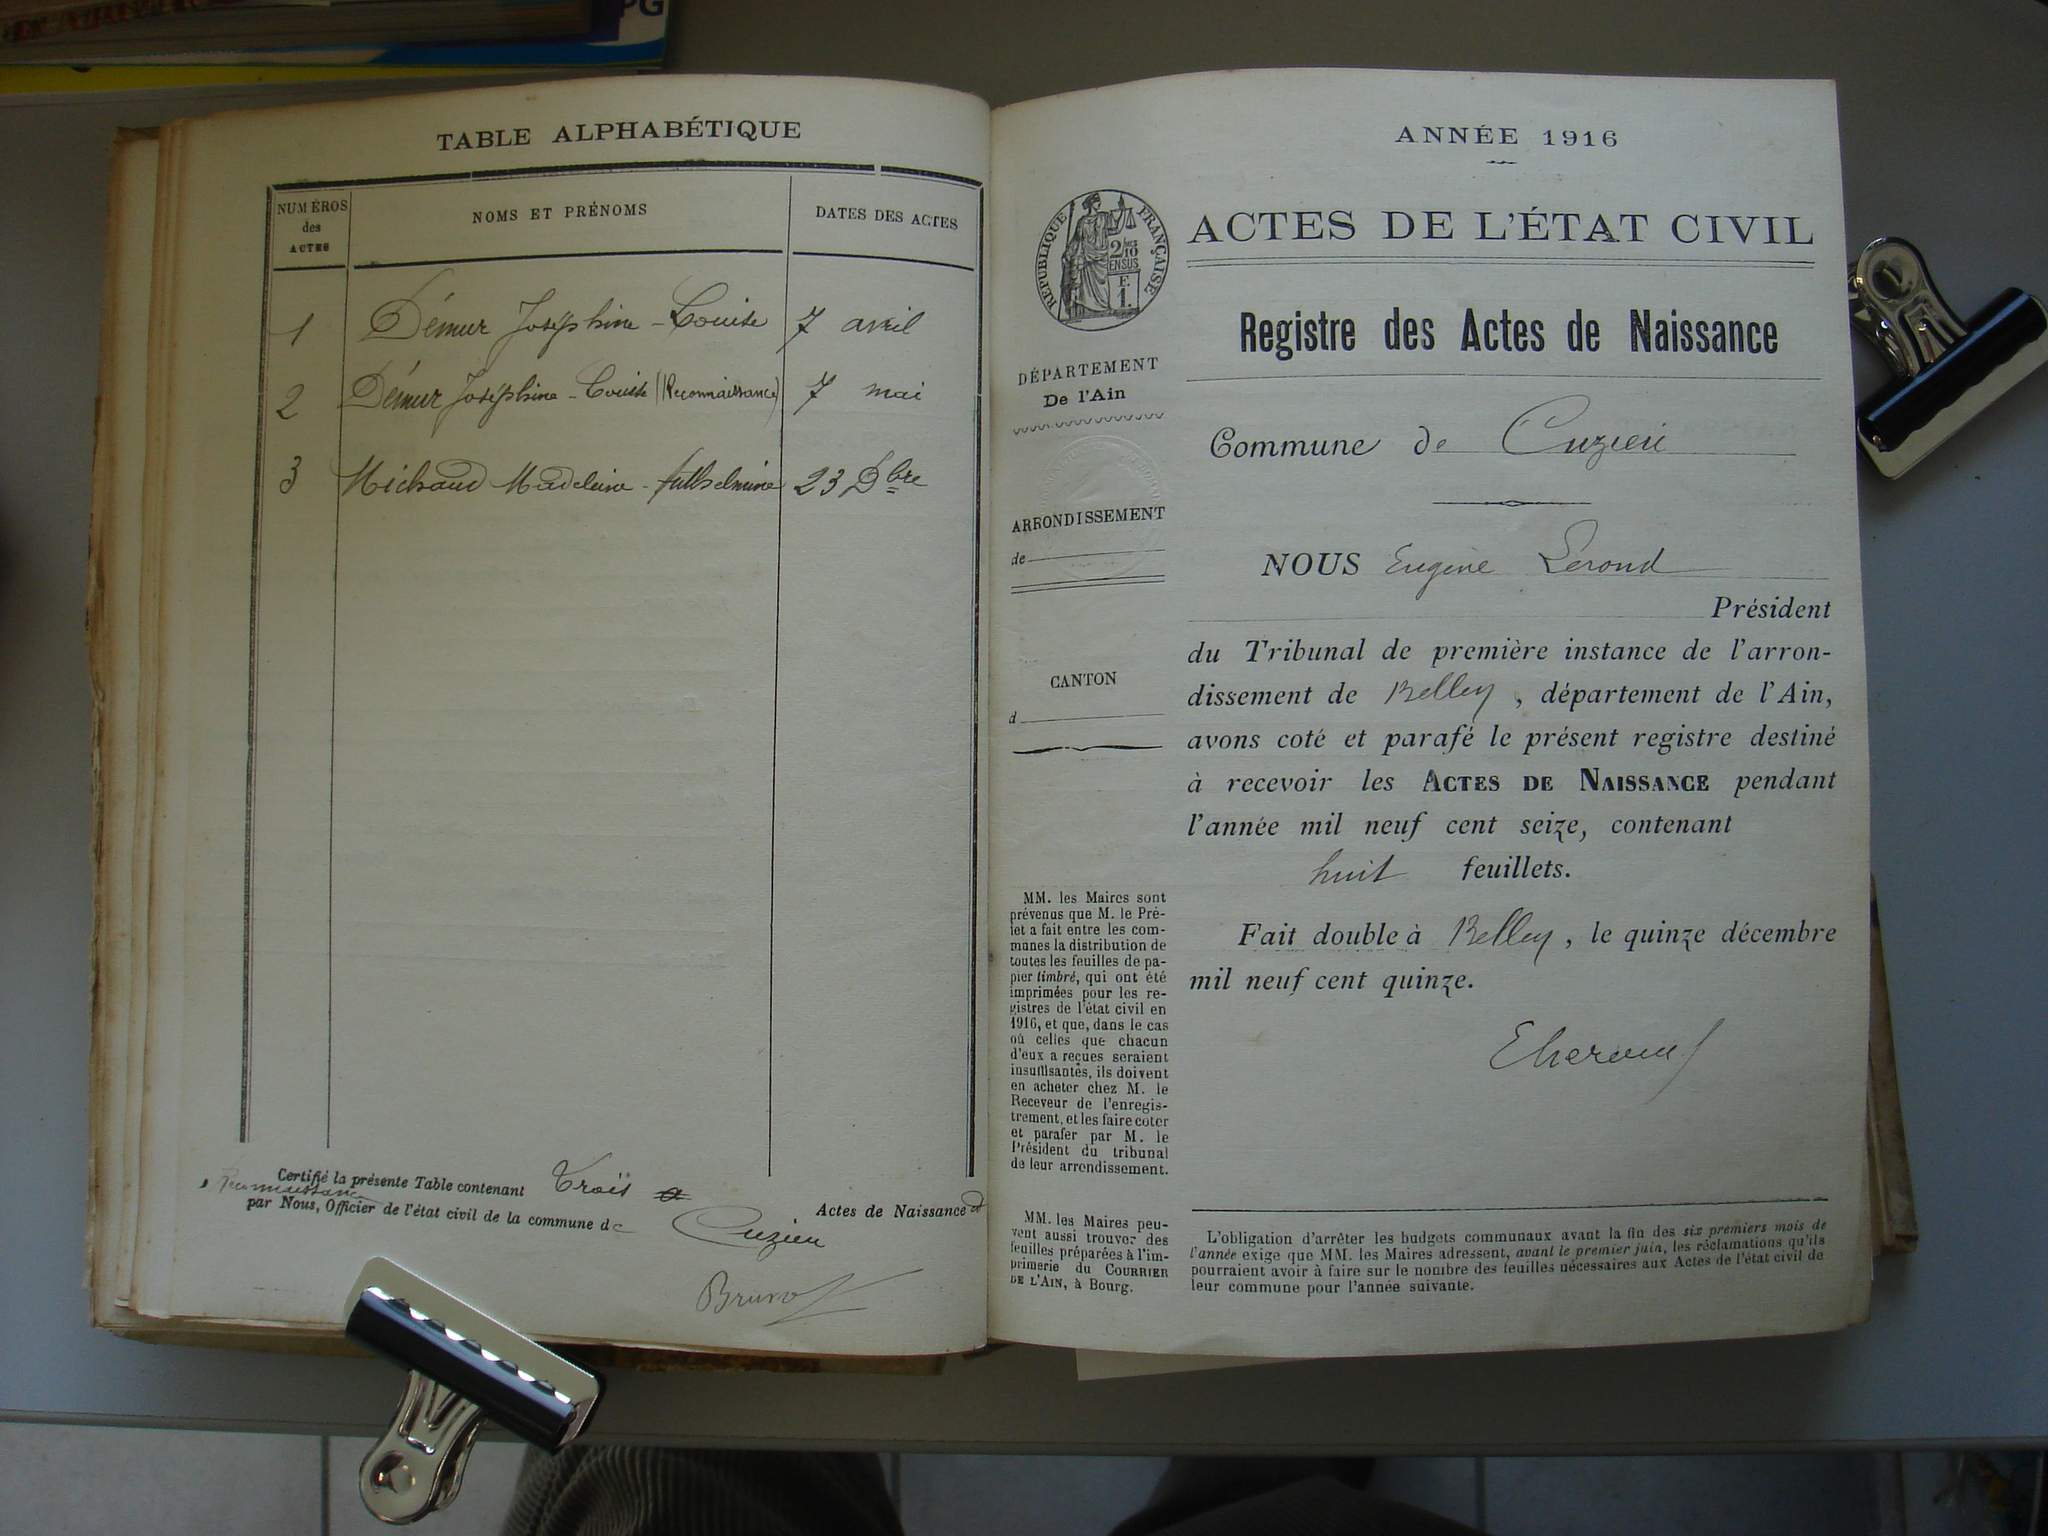 PG
TABLE ALPHABÉTIQUE
NUMÉROS
des
ACTES
NOMS ET PRÉNOMS
DATES DES ACTES
1 Démur Joséphine - Louise 7 avril
2 Démur Joséphine - Louise (Reconnaissance) 7 mai
3 Michaud Madeleine - Anthelmine 23 Dbre
Certifié la présente Table contenant Trois Actes de Naissance et
Reconnaissance
par Nous, Officier de l'état civil de la commune de Cuzieu
ANNÉE 1916
RÉPUBLIQUE FRANÇAISE
2/10
EN SUS
E
1.
ACTES DE L'ÉTAT CIVIL
Registre des Actes de Naissance
DÉPARTEMENT
De l'Ain
Commune de Cuzieu
ARRONDISSEMENT
de
NOUS Eugène Lerond
Président
du Tribunal de première instance de l'arron-
dissement de Belley, département de l'Ain,
avons coté et parafé le présent registre destiné
à recevoir les ACTES DE NAISSANCE pendant
l'année mil neuf cent seize, contenant
huit feuillets.
Fait double à Belley, le quinze décembre
mil neuf cent quinze.
CANTON
d
MM. les Maires sont
prévenus que M. le Pré-
fet a fait entre les com-
munes la distribution de
toutes les feuilles de pa-
pier timbré, qui ont été
imprimées pour les re-
gistres de l'état civil en
1916, et que, dans le cas
où celles que chacun
d'eux a reçues seraient
insuffisantes, ils doivent
en acheter chez M. le
Receveur de l'enregis-
trement, et les faire coter
et parafer par M. le
Président du tribunal
de leur arrondissement.
MM. les Maires peu-
vent aussi trouver des
feuilles préparées à l'im-
primerie du COURRIER
DE L'AIN, à Bourg.
L'obligation d'arrêter les budgets communaux avant la fin des six premiers mois de
l'année exige que MM. les Maires adressent, avant le premier juin, les réclamations qu'ils
pourraient avoir à faire sur le nombre des feuilles nécessaires aux Actes de l'état civil de
leur commune pour l'année suivante.